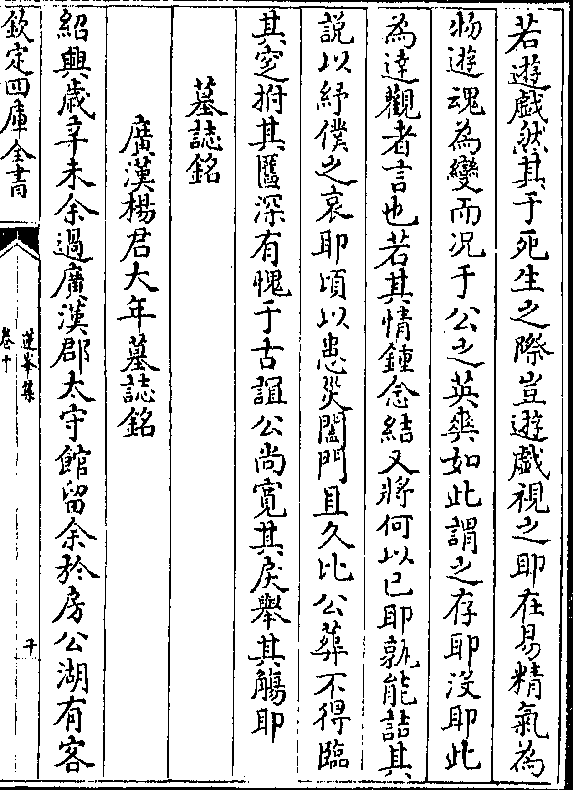 若遊戲然其于死生之際豈遊戲視之耶在易精氣為
物遊魂為變而况于公之英爽如此謂之存耶沒耶此
為達觀者言也若其情鍾念結又將何以已耶孰能詰其
說以紓僕之哀耶頃以患災闔門且久比公葬不得臨
其窆拊其匶深有愧于古誼公尚寛其戾舉其觴耶
墓誌銘
廣漢楊君大年墓誌銘
紹興歲辛未余過廣漢郡太守館留余於房公湖有客
欽定四庫全書
蓮峯集
卷十